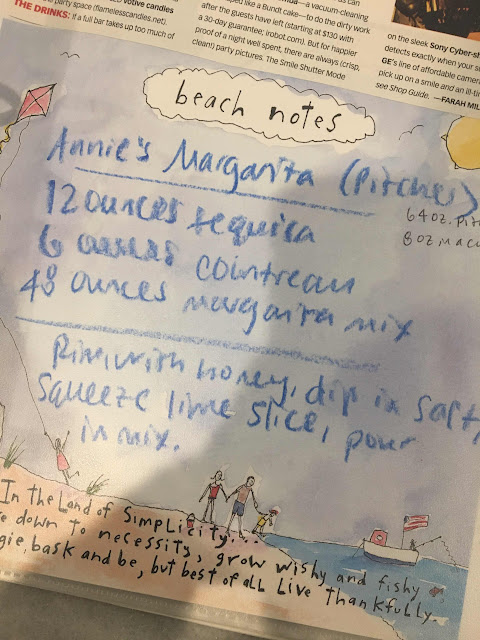 VOTIVE candles
party space (flamelesscandles.net).
THE DRINKS: If a full bar takes up too much of
—a vacuum-cleaning
shaped like a Bundt cake—to do the dirty work
after the guests have left (starting at $130 with
a 30-day guarantee; irobot.com). But for happier
proof of a night well spent, there are always (crisp,
clean!) party pictures. The Smile Shutter Mode
on the sleek Sony Cyber-sh
detects exactly when your s
pick up on a smile and an ill-tim
GE's line of affordable camer
see Shop Guide. —FARAH MIL
beach notes
Annie's Margarita (Pitcher)
64oz. Pit
8oz.
12 ounces tequila
6 ounces cointreau
48 ounces margarita mix
Rim with honey, dip in salt,
squeeze lime slice, pour
in mix.
In the Land of Simplicity...
down to necessity, grow wishy and fishy
bask and be, but best of all Live thankfully.